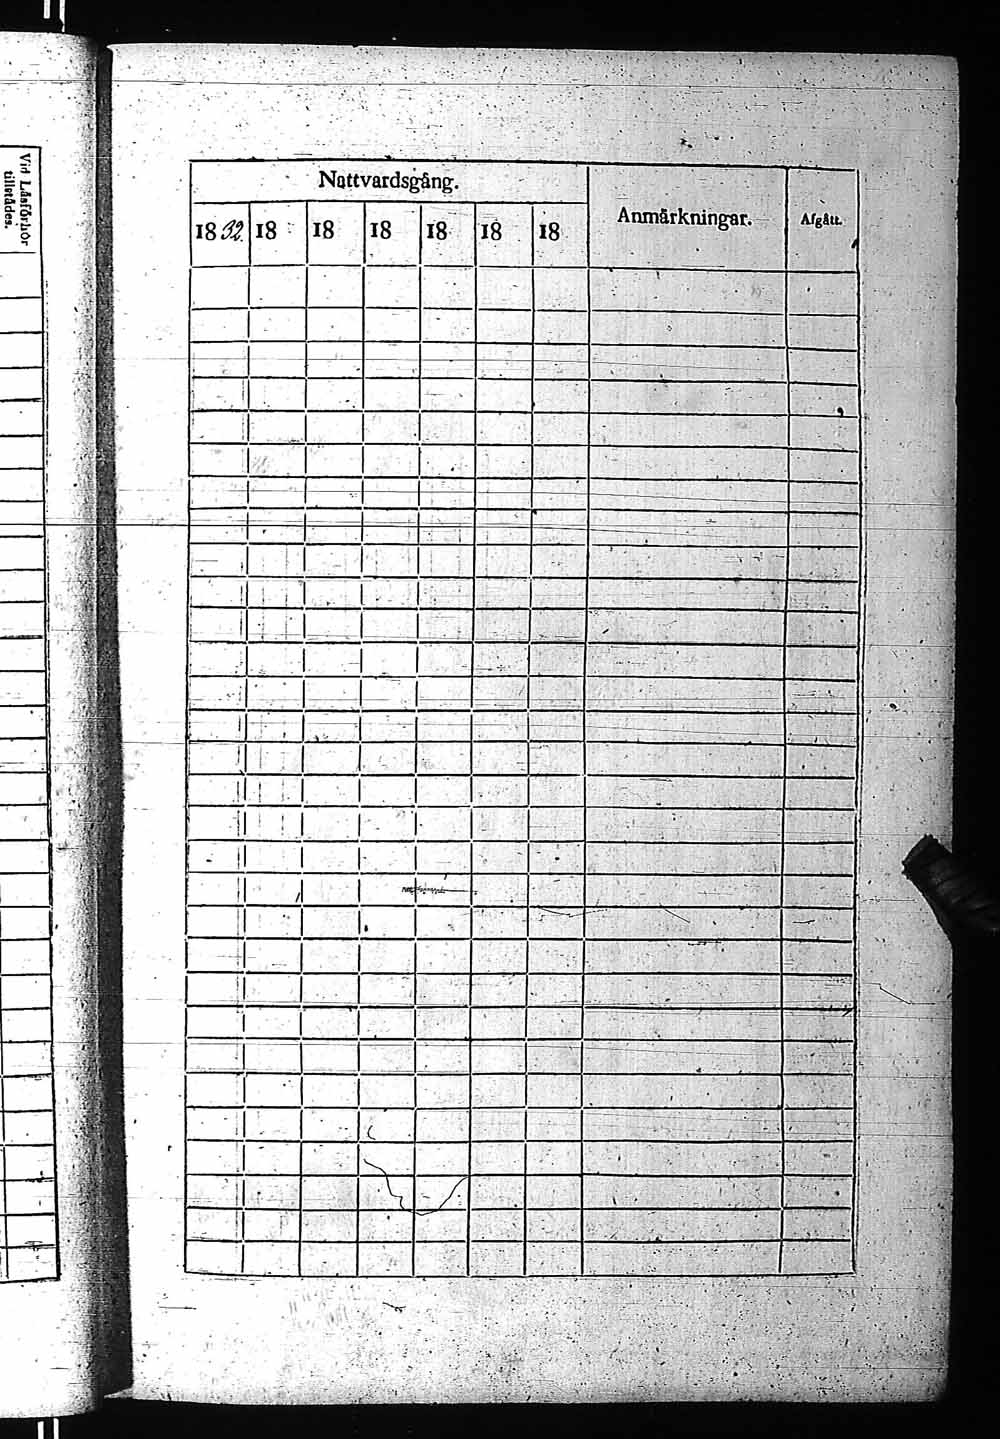 Vid Låsförhör
tillstådes.
Nattvardsgång.
Anmärkningar.
Afgått.
1832. 18 18 18 18 18 18